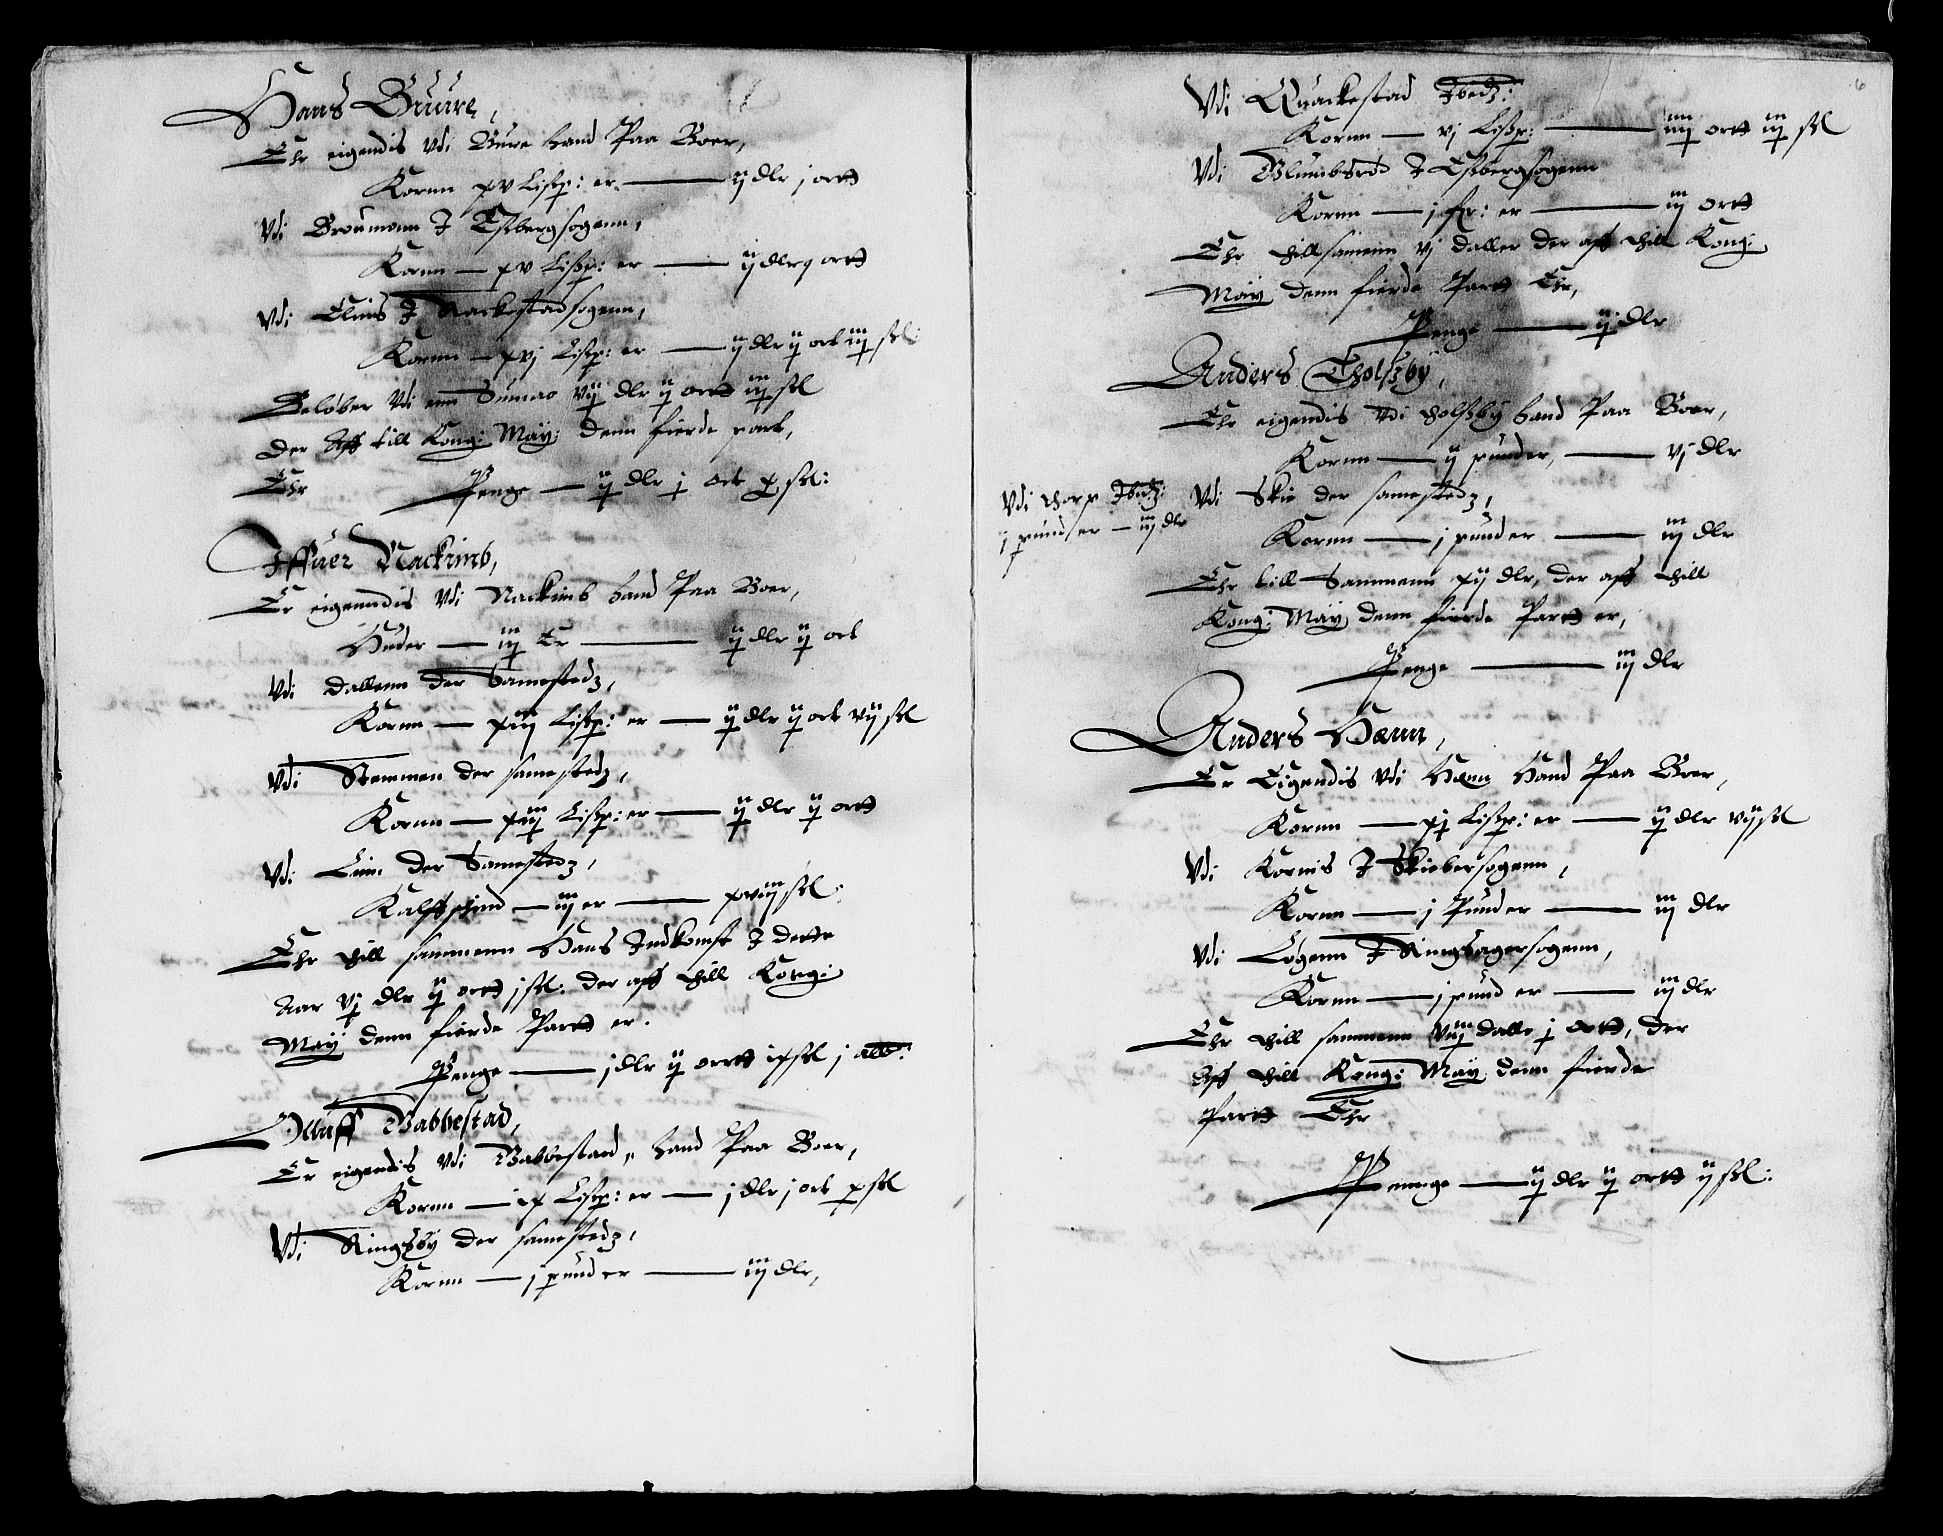 Hans Buure,
Ehr eigendis Vdi Bure hand Paa Boer,
Kornn xv Lisp: er — ij dlr j ortt
Vdi Groumonn I Tesbergsogenn,
Kornn — xv Lisp: er — ij dlr j ortt
Vdi Elins I Rackestadsogenn,
Kornn — xvj Lisp: er — ij dlr ij ort iiij sk:
Beløber Vdi enn Summa vij dlr ij ortt iiij sk
Der Aff till Kong: May: denn fierde part,
Ehr Penge — ij dlr j ort x sk:
Iffuer Nackimb,
Er eigenndis Vdi Nackimb hand Paa Boer,
Huder — iij Er — ij dlr ij ort
Vdi Dallenn der Samestedz,
Kornn — xvij Lisp: er — ij dlr ij ort vij sk
Vdi Stemmen der samestedz,
Kornn — xviij Lisp: er — ij dlr ij ortt
Vdi Lim der Samestedz,
Kalffskind — iij er — xviij sk:
Ehr thill sammenn Hans Indkomst I dette
Aar vj dlr ij ortt j sk: der aff thill Kong:
May denn fierde Partt er.
Penge — j dlr ij ortt ix sk j alb:
Olluff Babbestad,
Er eigendis Vdi Babbestaed, hand Paa Boer,
Kornn — ix Lisp: er — j dlr j ort x sk
Vdi Ringsby der samestedz,
Kornn — j pund er — iij dlr,
6
Vdi Quackestad Ibedz:
Kornn — vj Lisp: — iiij ortt iiij sk
Vdi Blumbsrød I Tesbergsogenn
Kornn — j fr: er — iij ortt
Ehr thillsamenn vj daller der aff thill Kong:
May denn fierde Partt Ehr,
Penge — ij dlr
Anders Tholsby,
Ehr eigendis Vdi Tholsby hand Paa Boer,
Kornn — ij punder, — vj dlr
Vdi Thorp Ibedz:
j pund er — iij dlr
Vdi Skie der samestedz,
Kornn — j pund er — iij dlr
Ehr till Sammenn xij dlr, der aff thill
Kong: May denn fierde Partt er,
Penge — iij dlr
Anders Hænn,
Er Eigendis Vdi Hænn Hand Paa Boer,
Kornn — xj Lisp: er — ij dlr vij sk
Vdi Kornis I Skiebersogenn,
Kornn — j Pund er — iij dlr
Vdi Løgenn I Ringsagersogenn,
Kornn — j pund er — iij dlr
Ehr thill sammenn viij dalle j ortt, der
Aff thill Kong: May denn fierde
Partt Ehr
Pennge — ij dlr ij ortt ij sk: